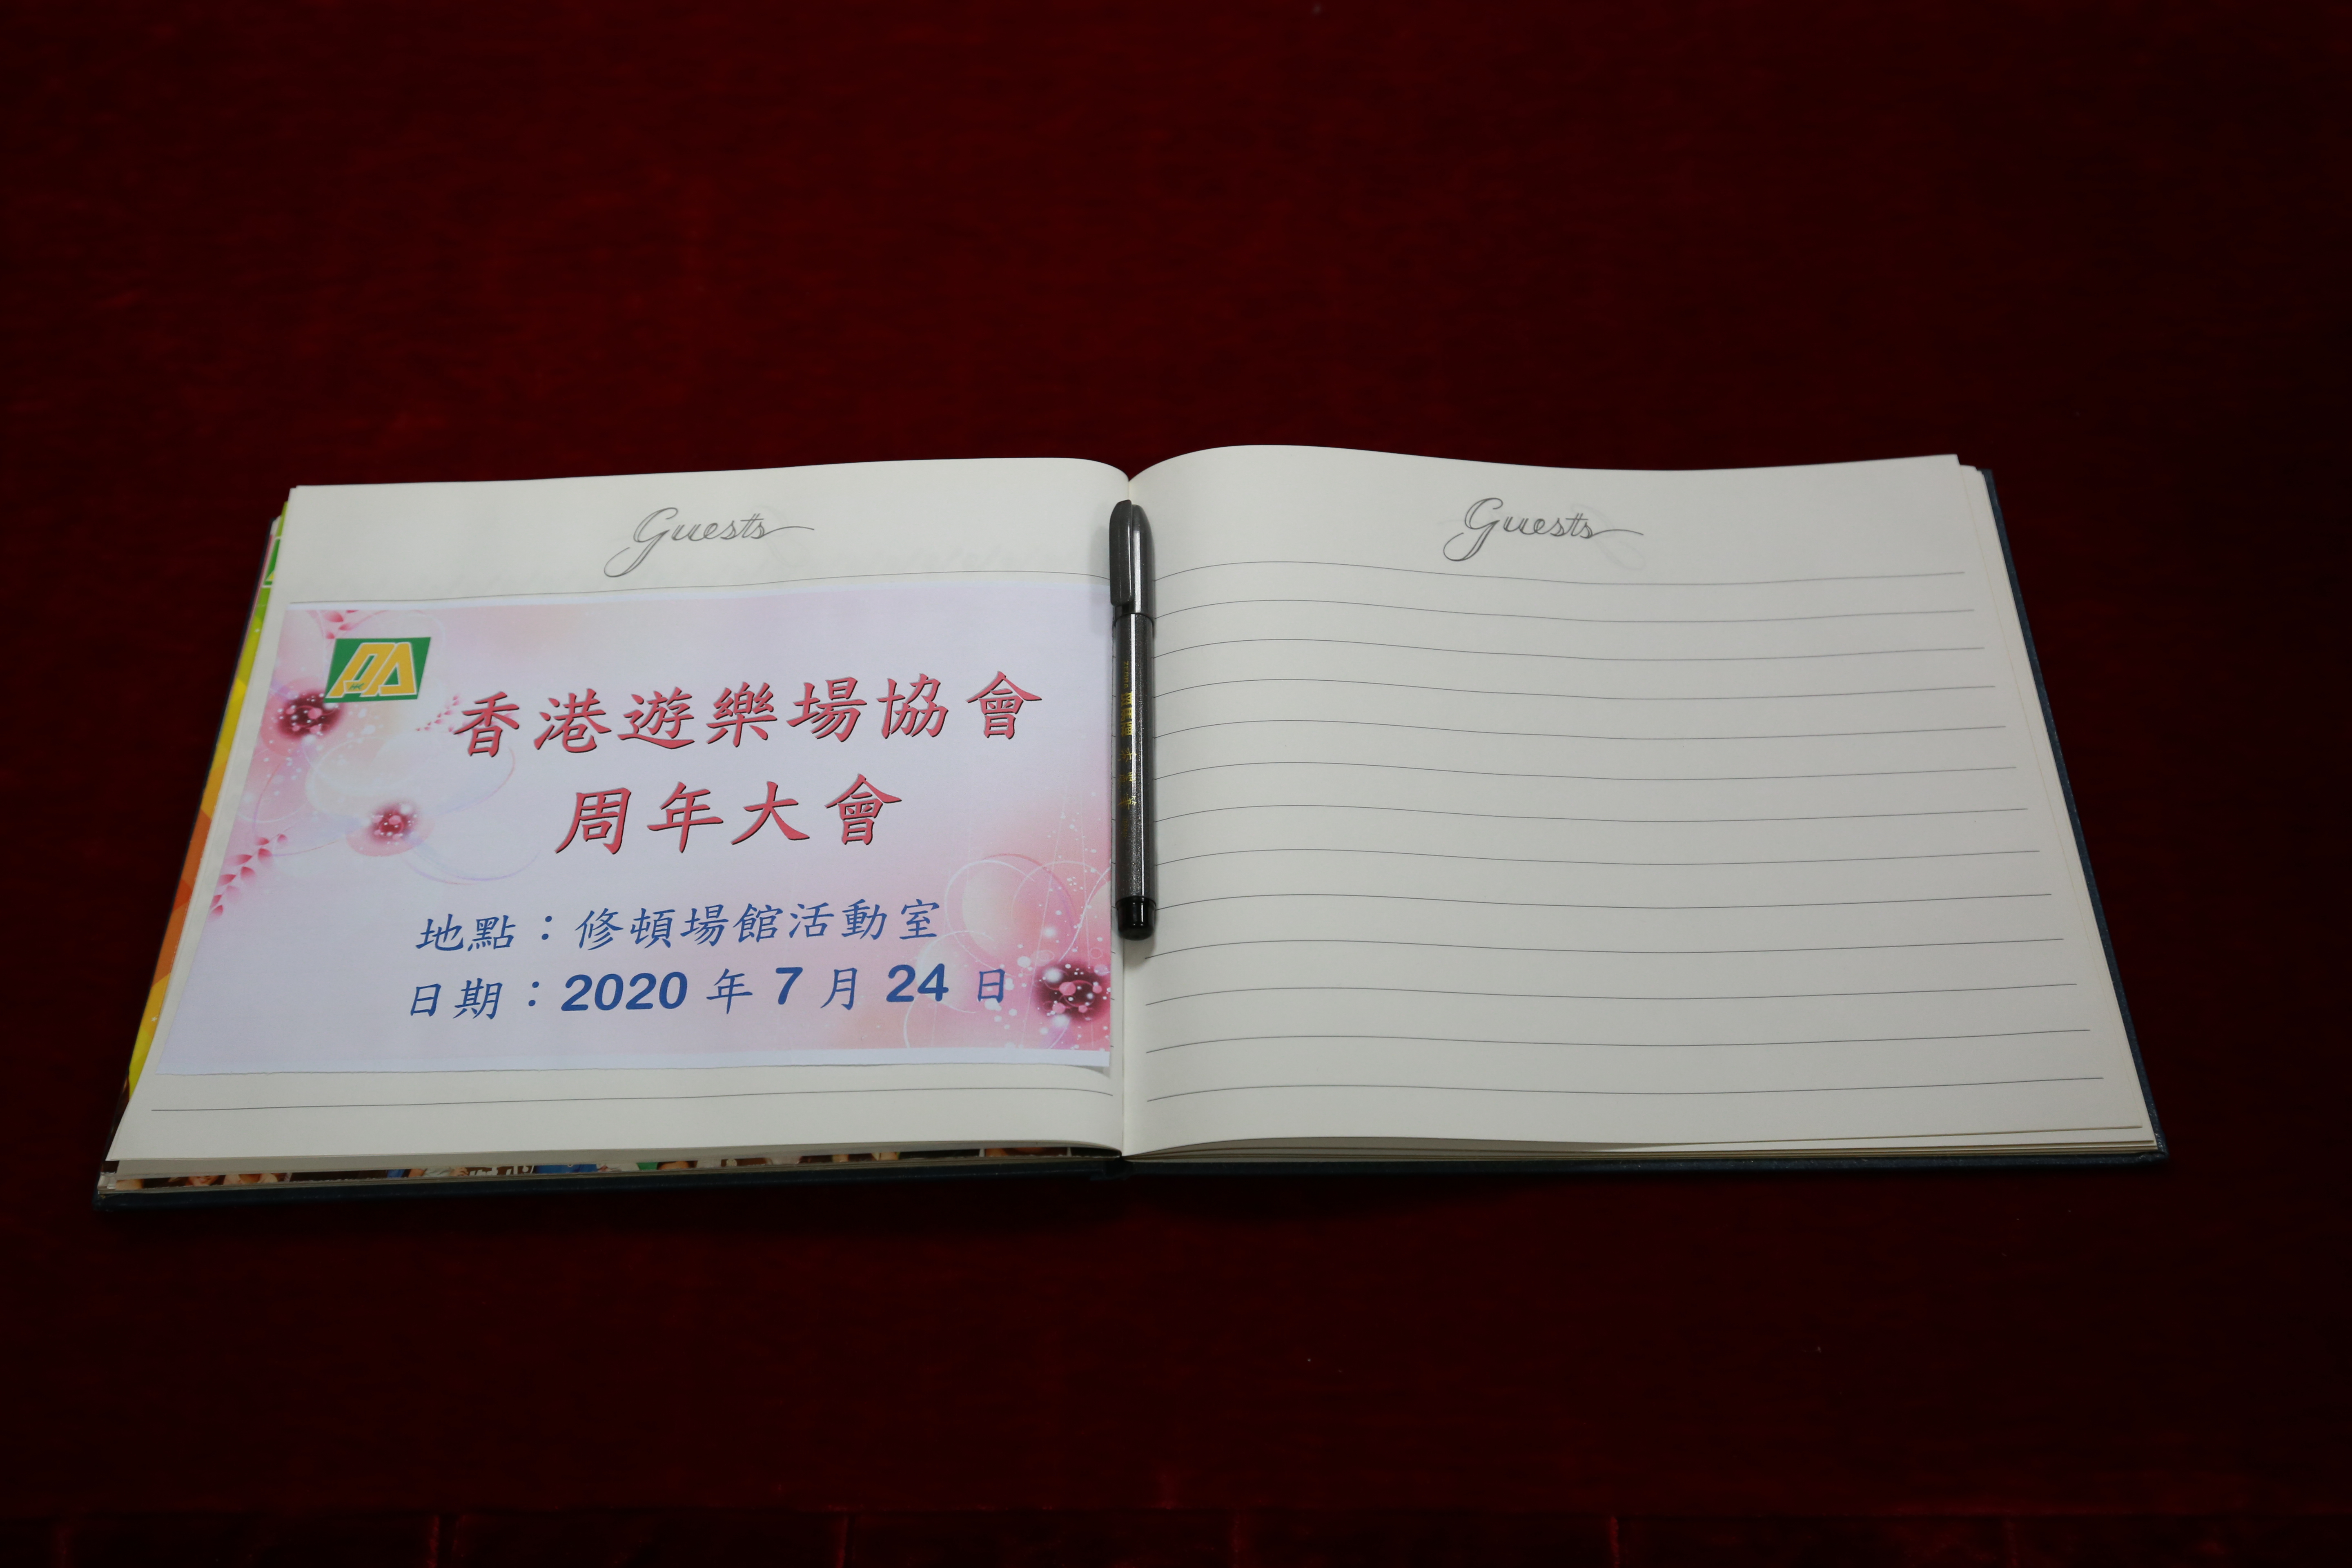 Guests
PA
香港遊樂場協會
周年大會
地點：修頓場館活動室
日期：2020 年 7 月 24 日
Guests